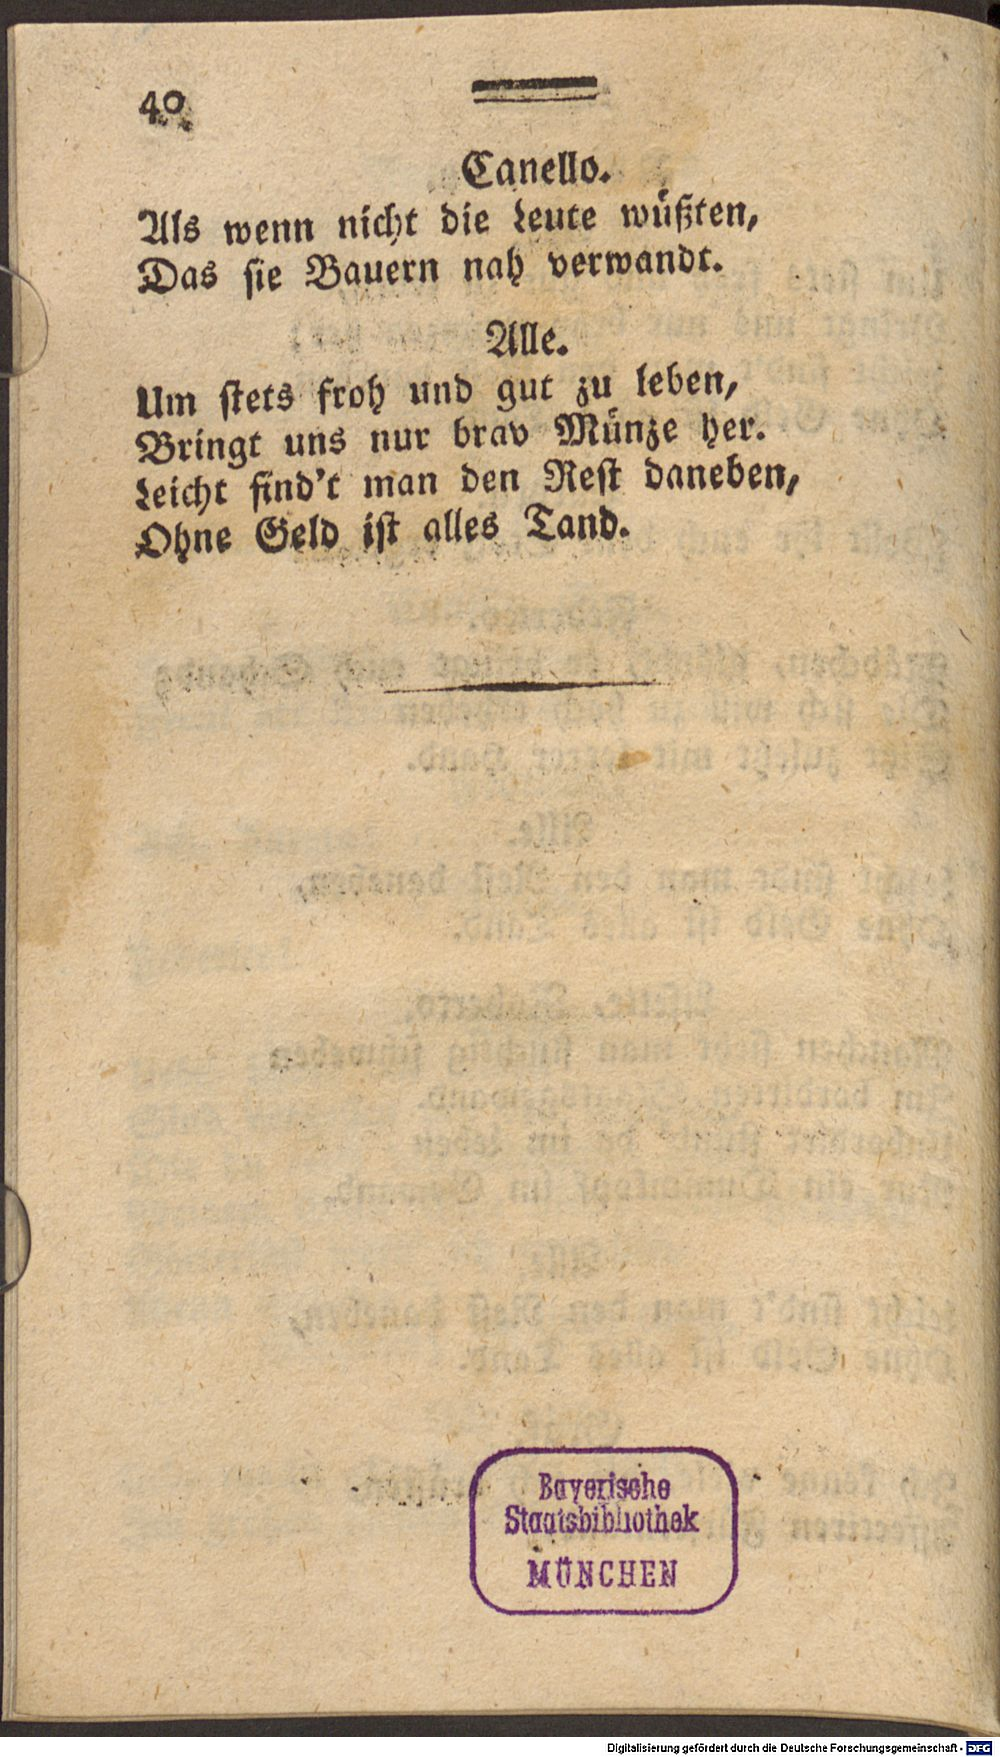 40
Canello.
Als wenn nicht die Leute wüßten,
Das sie Bauern nah verwandt.
Alle.
Um stets froh und gut zu leben,
Bringt uns nur brav Münze her.
Leicht find't man den Rest daneben,
Ohne Geld ist alles Tand.
Bayerische
Staatsbibliothek
MÜNCHEN
Digitalisierung gefördert durch die Deutsche Forschungsgemeinschaft - DFG